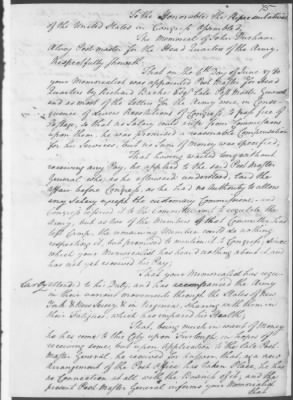 75
To the Honorable the Representatives
of the United States in Congress assembled.
The Memorial of John Durham
Alvey Post-master for the Head Quarters of the Army.
Respectfully sheweth
That on the 8th Day of June 1776
your Memorialist was appointed Post Master for Head
Quarters by Richard Bache Esqr. late Post Master General
and as most of the Letters for the Army were, in Conse-
quence of divers Resolutions of Congress, to pass free of
Postage, so that no Salary could arise from Commissions
upon them, he was promised a reasonable Compensation
for his Services, but no Sum of Money was specified,
That having waited long without
receiving any Pay, he applied to the said Post Master
General who, as he afterwards understood, laid the
Affair before Congress, as he had no Authority to allow
any Salary except the customary Commissions, and
Congress referred it to the Committee sent to regulate the
Army, but as two of the Members of that Committee, had
left Camp, the remaining Member could do nothing
respecting it, but promised to mention it to Congress, since
which your Memorialist has heard nothing about it and
has not yet received his Pay;
That your Memorialist has regu-
larly attended to his Duty, and has accompanied the Army
in their various movements through the States of New
York & New Jersey & in general, sharing with them in
their Fatigues, which has impaired his Health;
That, being much in want of Money
he has come to this City upon Furlough in hopes of
receiving some, but upon Application to the late Post
Master General he received for Answer, that as a new
Arrangement of the Post Office has taken Place, he has
no Connection at all with the Business of it, and the
present Post Master General informs your Memorialist
that